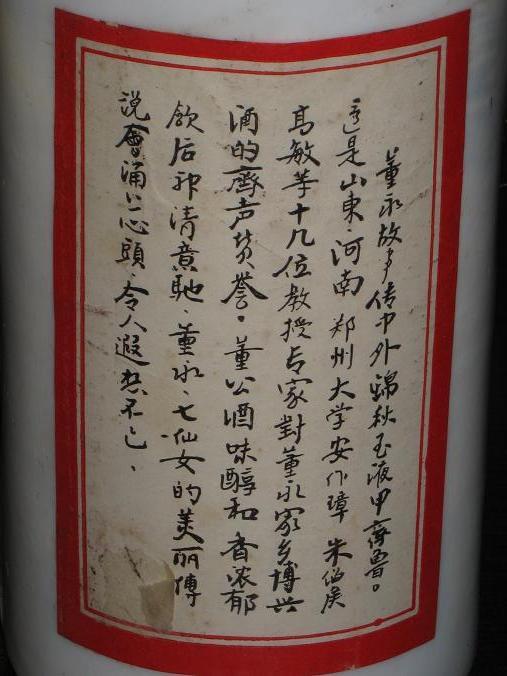 董永故事传中外錦秋玉液甲齊魯。
這是山東、河南 郑州大学安作璋 朱绍侯
高敏等十几位教授专家對董永家乡博兴
酒的齊声赞誉。董公酒味醇和 香浓郁
飲后神清意馳、董永、七仙女的美丽傳
说會涌上心頭、令人遐想不已、